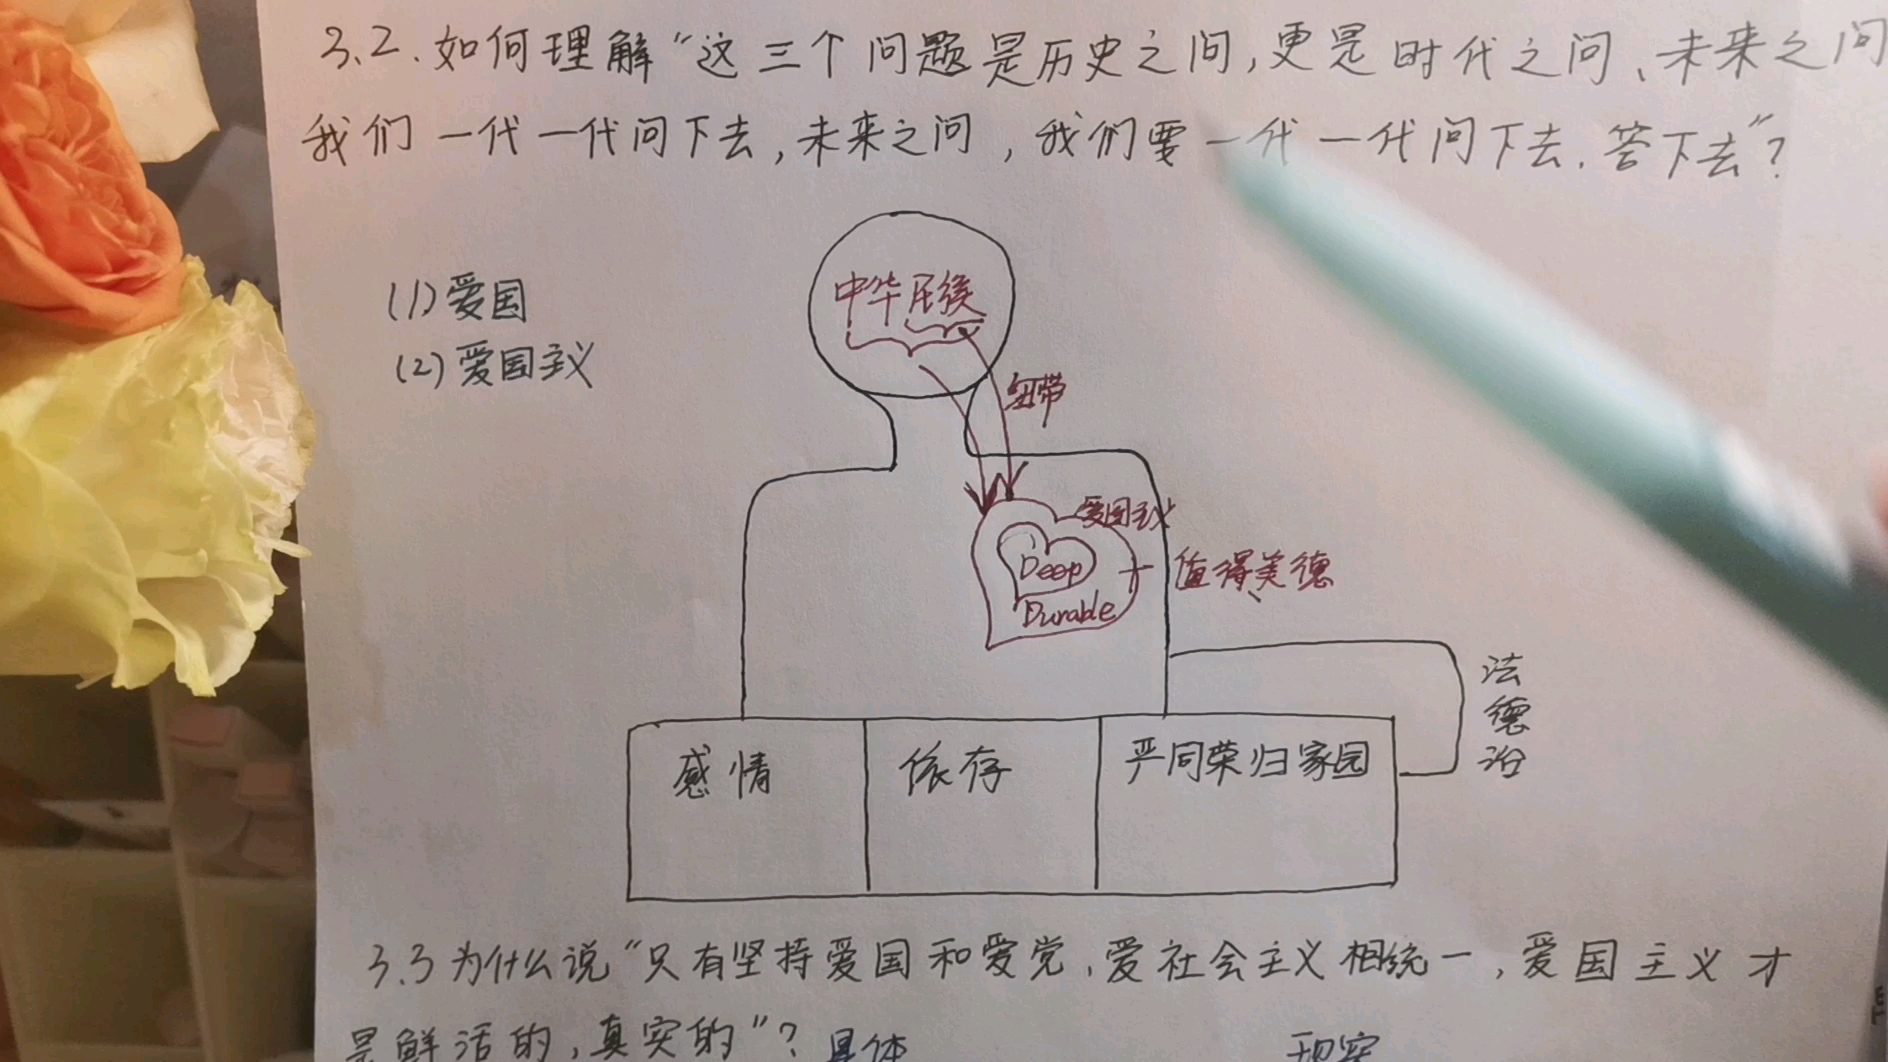 3.2.如何理解“这三个问题是历史之问,更是时代之问、未来之问
我们一代一代问下去,未来之问,我们要一代一代问下去.答下去”?
(1)爱国
(2)爱国主义
中华民族
纽带
爱国主义
Deep
Durable
值得美德
法
德
治
感情
依存
严同荣归家园
3.3为什么说“只有坚持爱国和爱党、爱社会主义相统一,爱国主义才
是鲜活的,真实的”?具体
现实